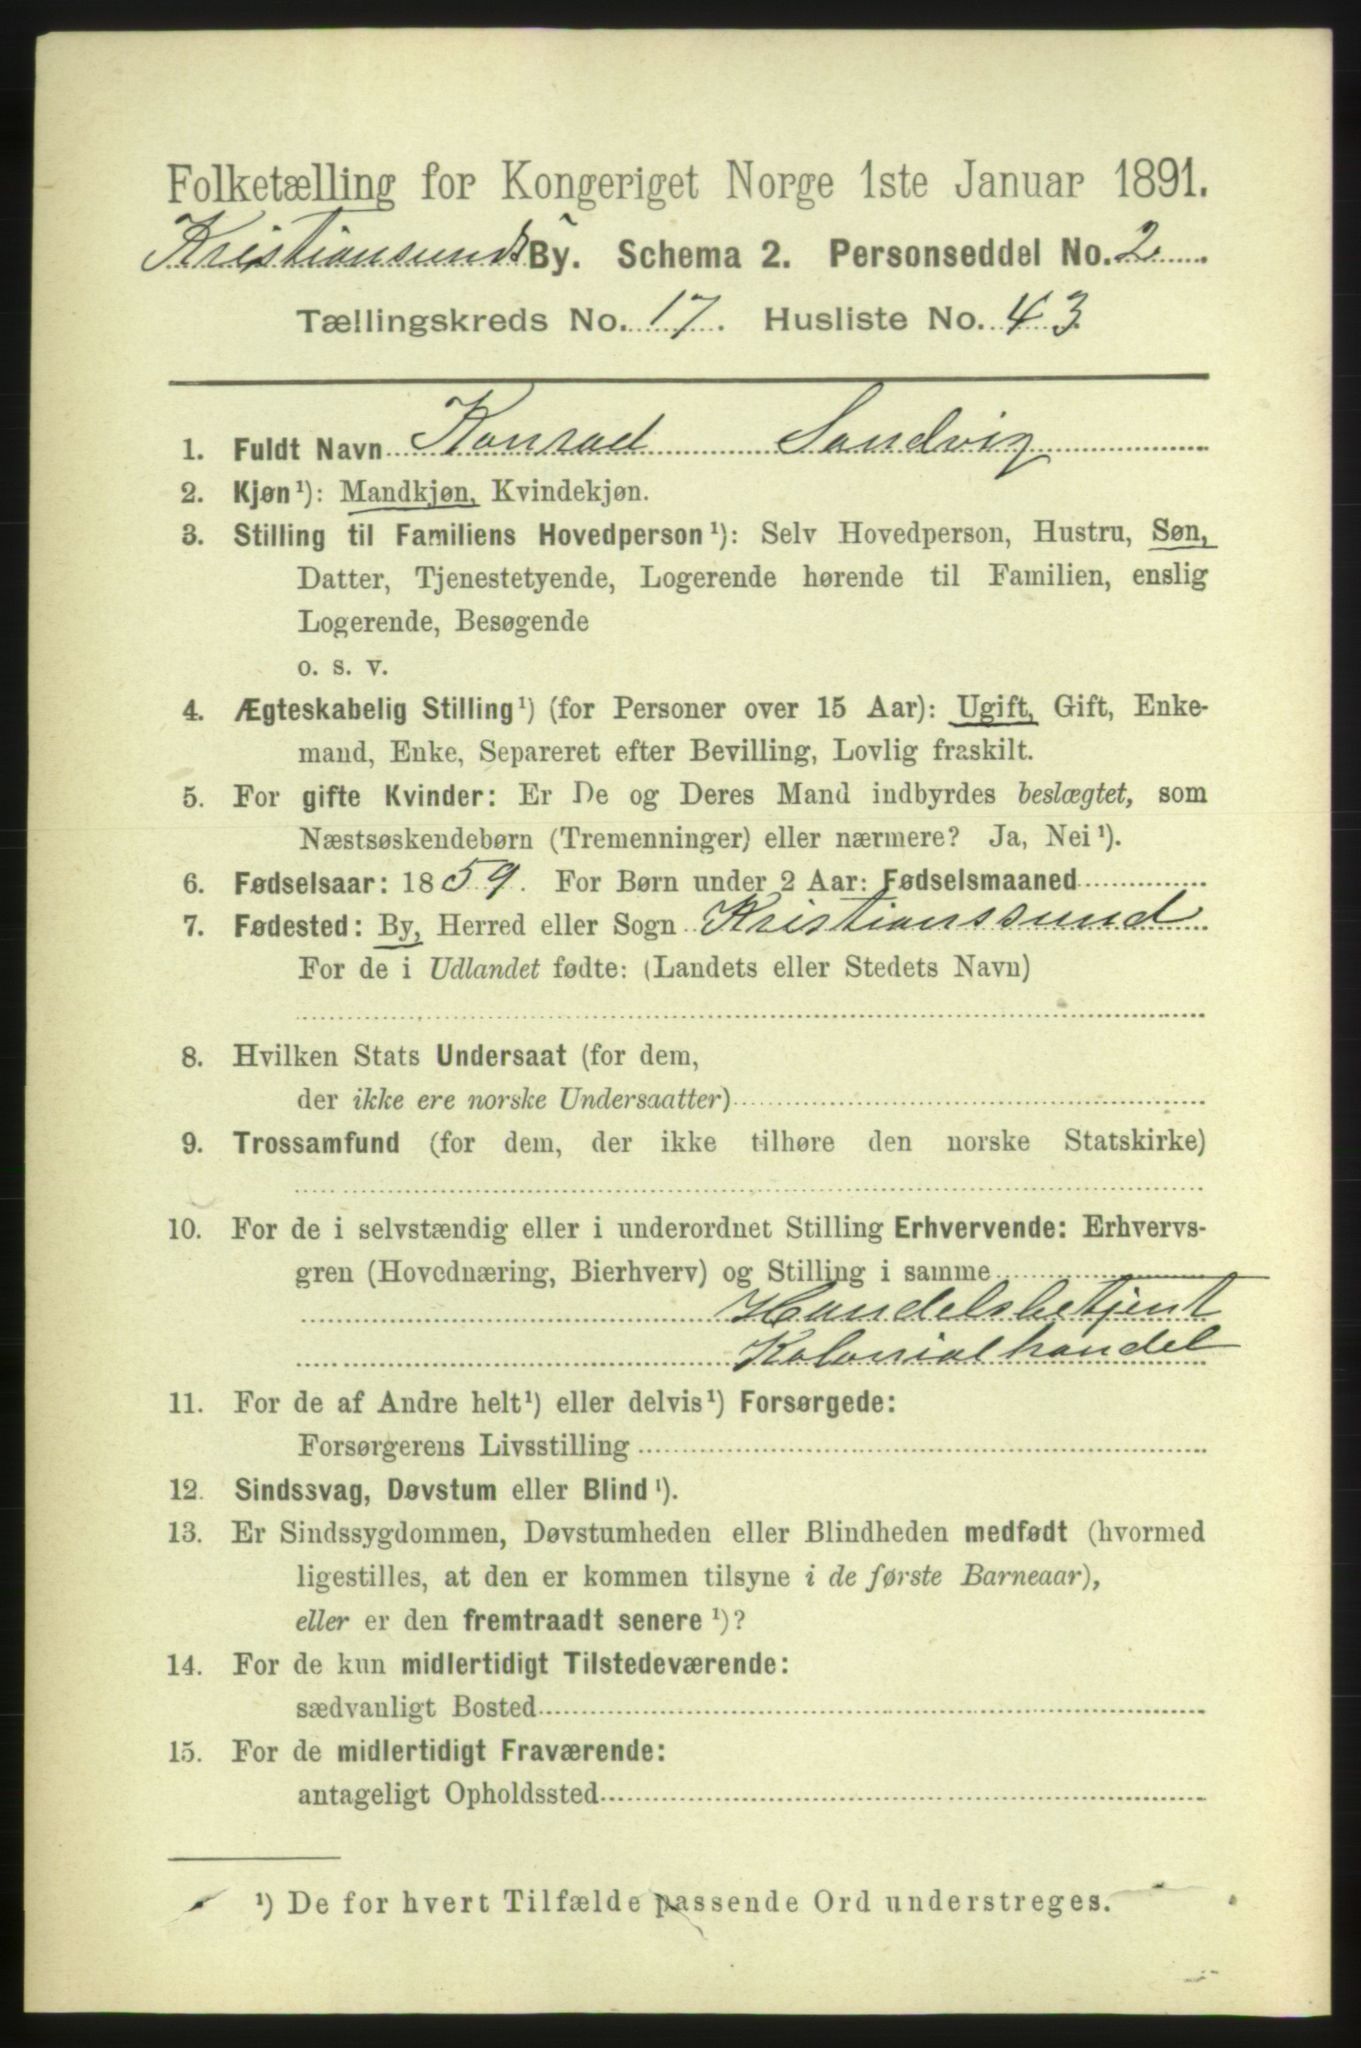 Folketælling for Kongeriget Norge 1ste Januar 1891.
Kristiansunds By. Schema 2. Personseddel No. 2
Tællingskreds No. 17. Husliste No. 43
1. Fuldt Navn Konrad Sandvig
2. Kjøn¹): Mandkjøn, Kvindekjøn.
3. Stilling til Familiens Hovedperson¹): Selv Hovedperson, Hustru, Søn,
Datter, Tjenestetyende, Logerende hørende til Familien, enslig
Logerende, Besøgende
o. s. v.
4. Ægteskabelig Stilling¹) (for Personer over 15 Aar): Ugift, Gift, Enke-
mand, Enke, Separeret efter Bevilling, Lovlig fraskilt.
5. For gifte Kvinder: Er De og Deres Mand indbyrdes beslægtet, som
Næstsøskendebørn (Tremenninger) eller nærmere? Ja, Nei¹).
6. Fødselsaar: 1859. For Børn under 2 Aar: Fødselsmaaned
7. Fødested: By, Herred eller Sogn Kristianssund
For de i Udlandet fødte: (Landets eller Stedets Navn)
8. Hvilken Stats Undersaat (for dem,
der ikke ere norske Undersaatter)
9. Trossamfund (for dem, der ikke tilhøre den norske Statskirke)
10. For de i selvstændig eller i underordnet Stilling Erhvervende: Erhvervs-
gren (Hovednæring, Bierhverv) og Stilling i samme
Handelsbetjent
Kolonialhandel
11. For de af Andre helt¹) eller delvis¹) Forsørgede:
Forsørgerens Livsstilling
12. Sindssvag, Døvstum eller Blind¹).
13. Er Sindssygdommen, Døvstumheden eller Blindheden medfødt (hvormed
ligestilles, at den er kommen tilsyne i de første Barneaar),
eller er den fremtraadt senere¹)?
14. For de kun midlertidigt Tilstedeværende:
sædvanligt Bosted
15. For de midlertidigt Fraværende:
antageligt Opholdssted
¹) De for hvert Tilfælde passende Ord understreges.